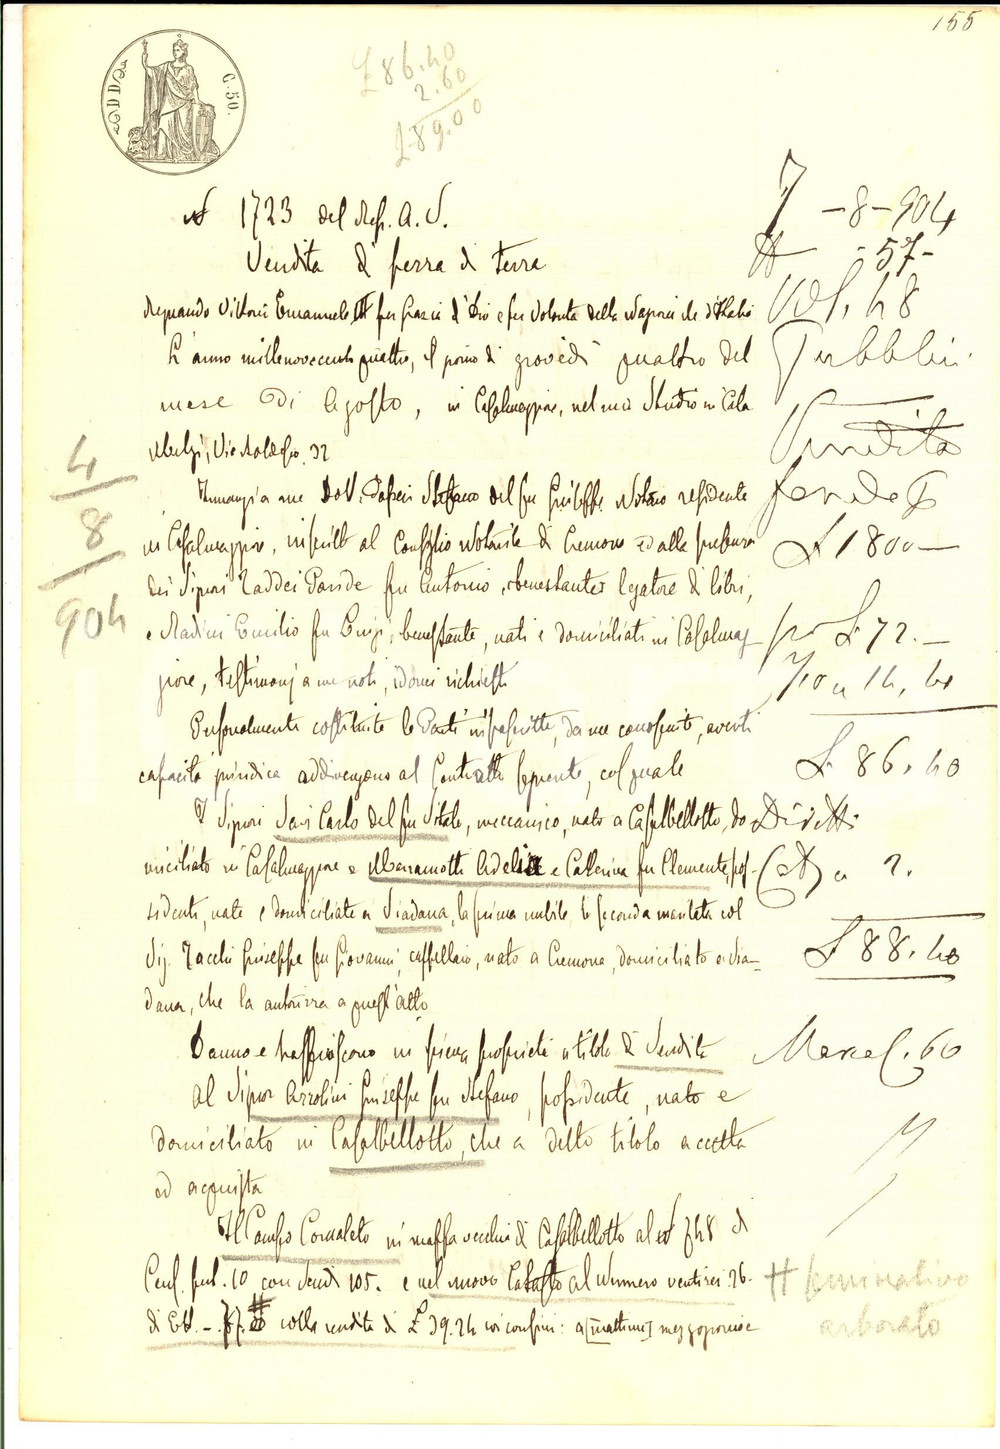 155
C. 50.
£ 86.40
2.60
£ 89.00
N 1723 del Rep. A. V.
Vendita di pezza di terra
Regnando Vittorio Emanuele III per grazia d'Dio e per volontà della Nazione Re d'Italia
L'anno millenovecento quattro, il giorno di giovedì quattro del
mese di Agosto, in Casalmaggiore, nel mio Studio in Casa
Via 32
Innanzi a me Dott. Stefano del fu Giuseppe Notaio residente
in Casalmaggiore, inscritto al Consiglio Notarile di Cremona ed alla presenza
dei Signori Taddei Paride fu Antonio, benestante legatore di libri,
e Radini Emilio fu Luigi, benestante, nati e domiciliati in Casalmag-
giore, testimonj a me noti, idonei richiesti
Personalmente costituite le Parti infrascritte, da me conosciute, aventi
capacità giuridica addivengono al Contratto seguente, col quale
I Signori Carlo del fu Vitale, meccanico, nato a Casalbellotto, do
miciliato in Casalmaggiore e Maramotti Adelia e Catterina fu Clemente, pos-
sidenti, nate e domiciliate a Viadana, la prima nubile la seconda maritata col
Sig. Tacchi Giuseppe fu Giovanni, cappellaio, nato a Cremona, domiciliato a Via-
dana, che la autorizza a quest'atto
Danno e trasferiscono in piena proprietà a titolo di Vendita
al Signor Azzolini Giuseppe fu Stefano, possidente, nato e
domiciliato in Casalbellotto, che a detto titolo accetta
ed acquista
Il Campo Cornaleto in mappa vecchia di Casalbellotto al N 748 di
Cens. pert. 10 con Scudi 105. e nel nuovo Catasto al Numero ventisei 26.
di Ett. - 77. # colla rendita di £ 39.24 coi confini: a [mattina] mezzogiorno e
4
8
904
7 - 8 - 904
# - 57 -
Vol. 48
Pubblici
Vendita
£ 1800 -
£ 72. -
14,40
£ 86,40
Diritti
Cat 2.
£ 88.40
Marche .60
# seminativo
arborato